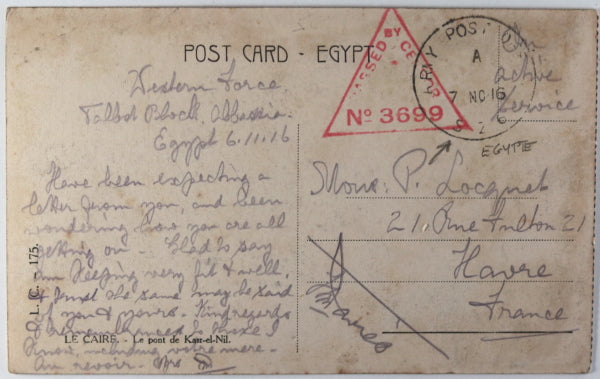 POST CARD - EGYPT
PASSED BY CENSOR
Nº 3699
ARMY POST OFFICE
A
7 NO 16
S Z
EGYPTE
Active
Service
Western Force.
Talbot Block, Abbassia.
Egypt 6.11.16
Have been expecting a
letter from you, and been
wondering how you are all
getting on. Glad to say
am keeping very fit & well,
& trust the same may be said
of you & yours. Kind regards
& remembrances to those I
know, including votre mere.
Au revoir.
Mons. P. Locquet
21, Rue Fulton 21
Havre
France
L. C. 175.
LE CAIRE. - Le pont de Kasr-el-Nil.